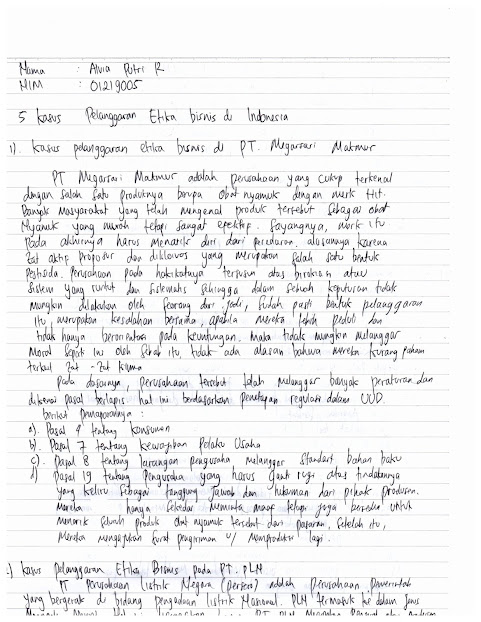 Nama : Alvia Putri R
NIM : 01219005
5 Kasus Pelanggaran Etika bisnis di Indonesia
1). Kasus pelanggaran etika bisnis di PT. Megarsari Makmur
PT Megarsari Makmur adalah perusahaan yang cukup terkenal
dengan salah satu produknya berupa Obat nyamuk dengan merk Hit.
Banyak Masyarakat yang telah mengenal produk tersebut sebagai obat
Nyamuk yang murah tetapi sangat efektif. Sayangnya, merk itu
pada akhirnya harus menarik diri dari peredaran. alasannya karena
Zat aktif Propoxur dan diklorvos yang merupakan salah satu bentuk
Pestisida. Perusahaan pada hakikatnya tersusun atas birokrasi atau
Sistem yang runtut dan sistematis sehingga dalam sebuah keputusan tidak
Mungkin dilakukan oleh seorang diri. Jadi, sudah pasti bentuk pelanggaran
Itu merupakan kesalahan bersama, apabila mereka lebih peduli dan
tidak hanya berorientasi pada keuntungan, maka tidak mungkin melanggar
Moral seperti ini oleh sebab itu, tidak ada alasan bahwa mereka kurang paham
terkait zat - zat kimia
Pada dasarnya, perusahaan tersebut telah melanggar banyak peraturan dan
dikenai pasal berlapis hal ini berdasarkan penetapan regulasi dalam UUD.
berikut pemaparannya :
a). Pasal 4 tentang konsumen
b). Pasal 7 tentang kewajiban Pelaku Usaha
c). Pasal 8 tentang larangan pengusaha melanggar standart bahan baku
d) Pasal 19 tentang Pengusaha yang harus ganti rugi atas tindakannya
yang keliru sebagai tanggung jawab dan hukuman dari pihak produsen.
Mereka hanya sekedar meminta maaf tetapi juga bersedia untuk
menarik seluruh produk obat nyamuk tersebut dari pasaran, setelah itu,
Mereka mengajukan surat pengiriman u/ memproduksi lagi.
Kasus Pelanggaran Etika Bisnis pada PT. PLN
PT Perusahaan listrik Negara (persero) adalah Perusahaan pemerintah
yang bergerak di bidang pengadaan listrik Nasional. PLN termasuk ke dalam jenis